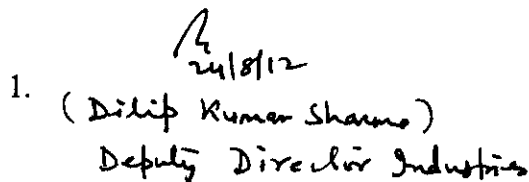 24/8/12
1.
(Dilip Kumar Sharma)
Deputy Director Industries